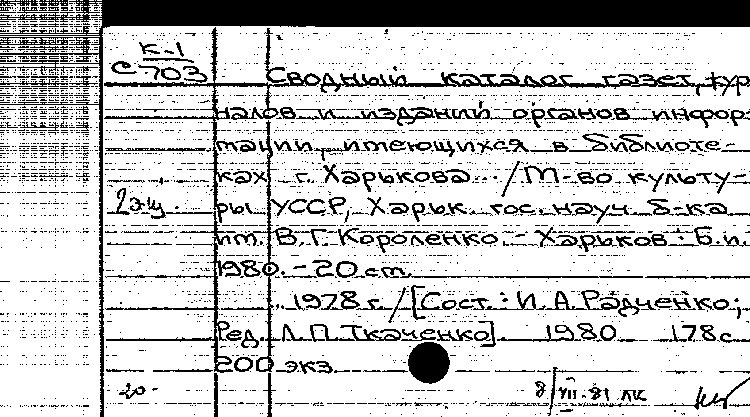 К-1
С 703
Сводный каталог газет, жур
налов и изданий органов инфор
мации, имеющихся в библиоте-
ках г. Харькова... / М-во культу-
2 экз.
ры УССР, Харьк. гос. науч. б-ка
им. В. Г. Короленко. - Харьков: Б.и.
1980. - 20 см.
.. 1978 г. / [Сост.: И. А. Радченко;
Ред. Л. П. Ткаченко]. 1980 178 с
200 экз.
20-
8/VII-81 ЛК